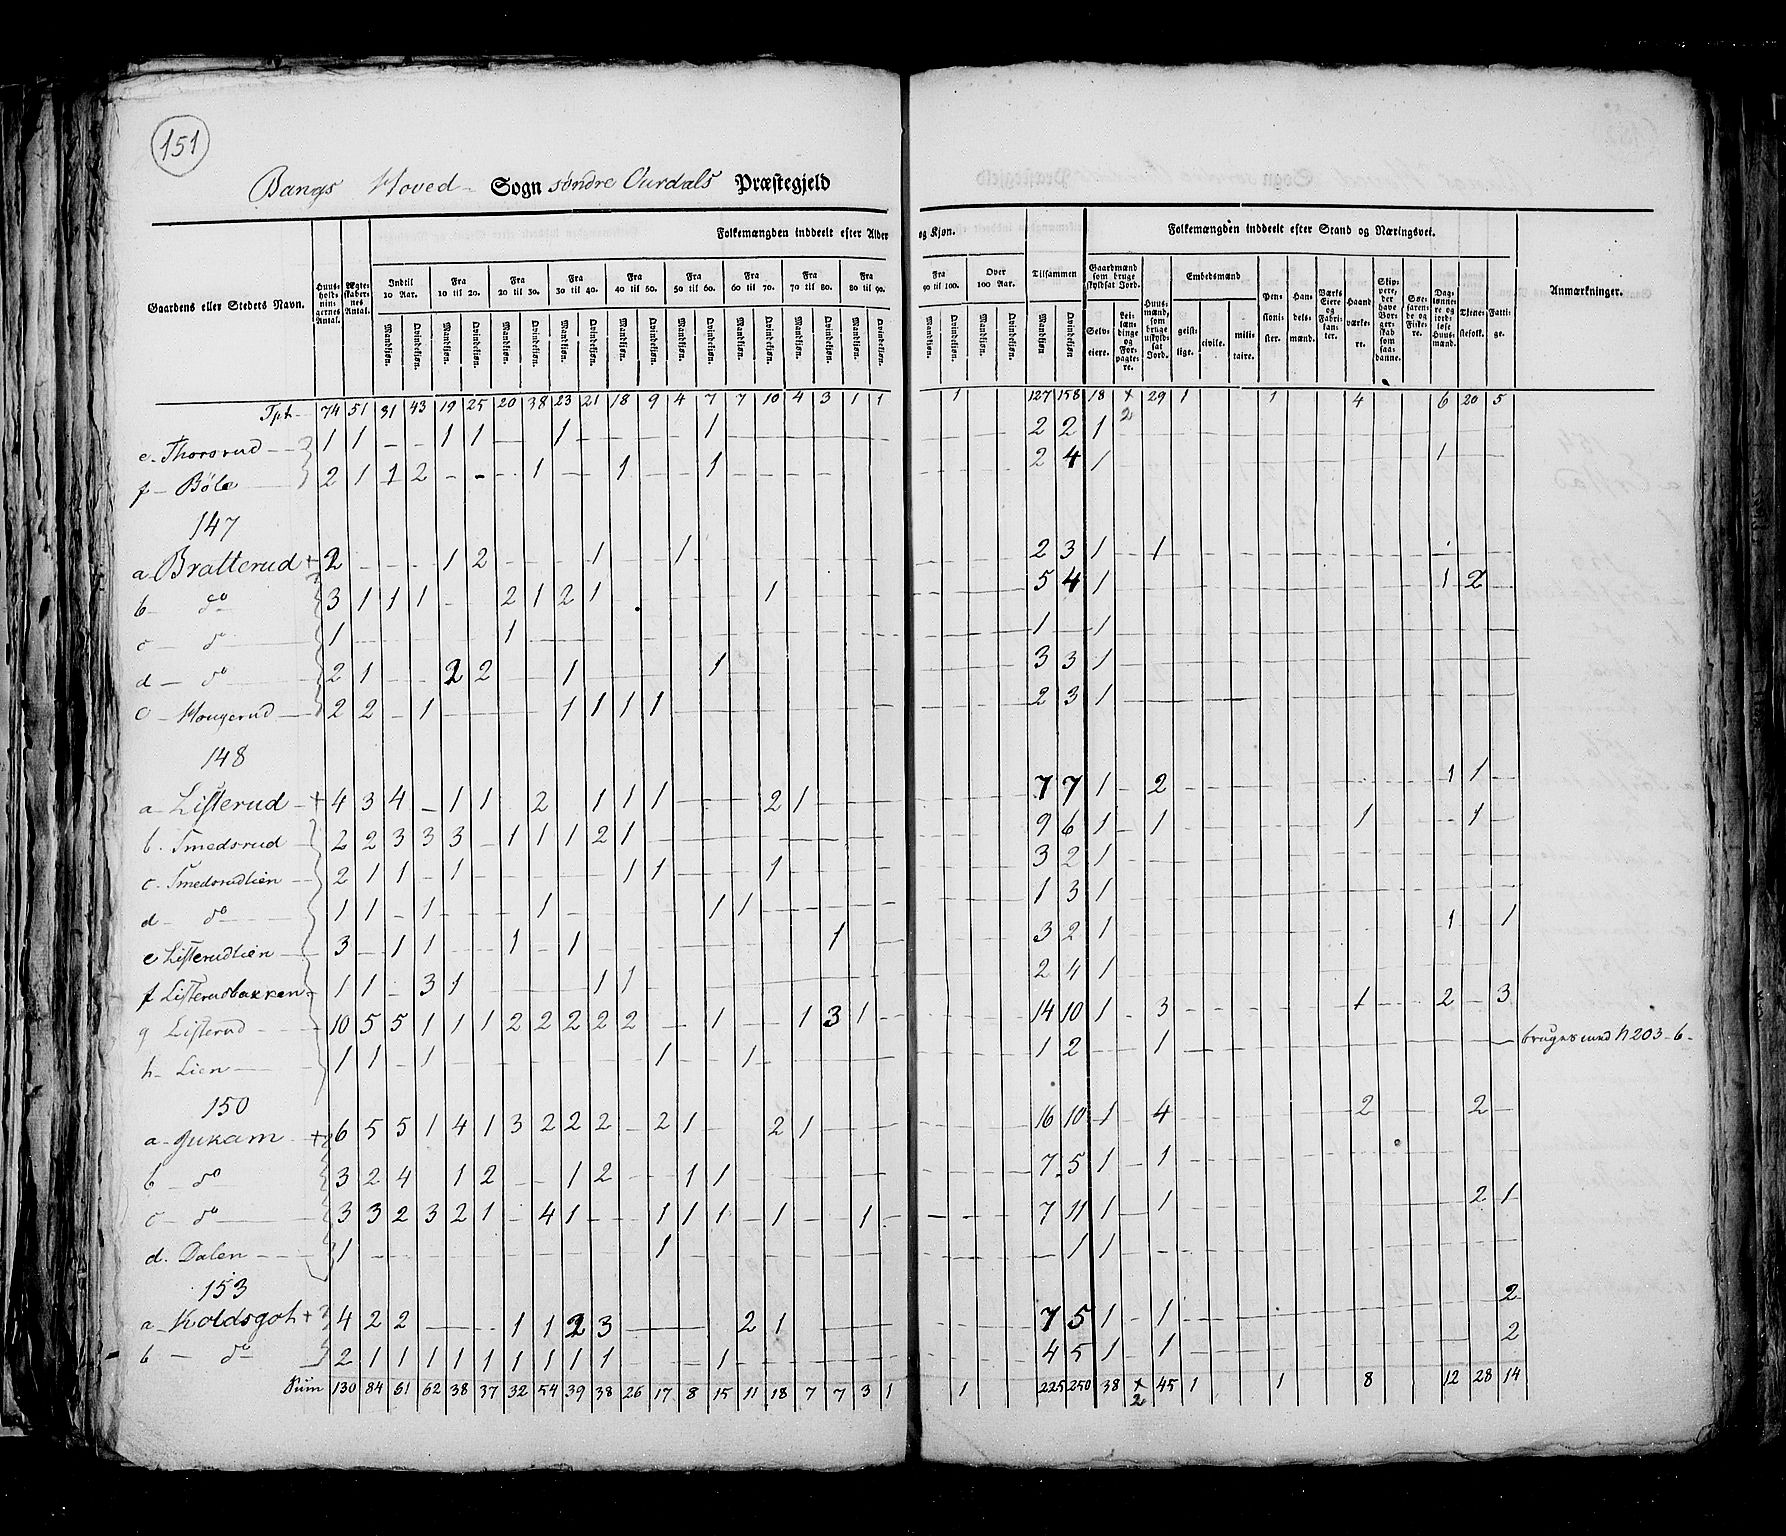 151
Bangs Hoved- Sogn søndre Ourdals Præstegjeld
Gaardens eller Stedets Navn.
Huusholdningernes Antal.
Ægteskabernes Antal.
Folkemængden inddeelt efter Alder og Kjøn.
Indtil 10 Aar. Fra 10 til 20. Fra 20 til 30. Fra 30 til 40. Fra 40 til 50. Fra 50 til 60. Fra 60 til 70. Fra 70 til 80. Fra 80 til 90. Fra 90 til 100. Over 100 Aar. Tilsammen
Mandkjøn. Qvindekjøn.
Folkemængden inddeelt efter Stand og Næringsvei.
Gaardmænd som bruge skyldsat Jord.
Selveiere. Leilændinge og Forpagtere.
Huusmænd, som bruge uskyldsat Jord.
Embedsmænd
geistlige. civile. militaire.
Pensionister. Handelsmænd. Værks Eiere og Fabrikanter. Haandværkere. Skippere, der have Borgerskab som saadanne. Søefarende og Fiskere. Daglønnere og jordløse Huusmænd. Tjenestefolk. Fattige.
Anmærkninger.
Tpt- 74 51 31 43 19 25 20 38 23 21 18 9 4 7 7 10 4 3 1 1 1 127 158 18 + 2 29 1 1 4 6 20 5
e- Thorsrud 1 1 - - 1 1 - - 1 - - - - 1 2 2 1
f- Böle 2 1 1 2 - - - 1 - - 1 - - 1 2 4 1 1
147
a- Bratterud + 2 - - - 1 2 - - - 1 - - 1 2 3 1 - 1
b- do 3 1 1 1 - - 2 1 2 1 1 5 4 1 1 2
c- do 1 1 1 - 1
d- do 2 1 - - 2 2 - - 1 1 3 3 1
e- Hougerud 2 2 - 1 1 1 1 1 2 3 1
148
a- Listerud + 4 3 4 - 1 1 - 2 - 1 1 1 - - - 2 1 7 7 1 - 2 1 1
b- Smedsrud 2 2 3 3 3 - 1 1 1 2 1 9 6 1 - 1 1 1
c- Smedsrudlien 2 1 1 - 1 1 1 1 3 2 1
d- do 1 1 - 1 1 1 1 1 3 1
e Listerudlien 3 - 1 1 - - 1 - 1 1 3 2 1 1 1
f Listerudbakken 1 1 - 3 1 1 1 2 4 1
g Listerud 10 5 5 1 1 1 2 2 2 2 2 - - 1 - - 1 3 1 14 10 1 - 3 1 2 - 3
h- Lien 1 1 - 1 1 1 1 2 - - 1 bruges med N 203-6-
150
a- Jukam + 6 5 5 1 4 1 3 2 2 2 - 2 1 - - 2 1 16 10 1 - 4 2 2
b do 3 2 4 - 1 2 - - 1 2 - - 1 1 7 5 1 - 1
c- do 3 3 2 3 2 1 - 4 1 - - 1 1 1 - 1 - - 1 7 11 1 - 1 2 1
d. Dalen 1 1 - 1 1
153
a- Koldsgoh + 4 2 2 1 1 2 3 2 1 7 5 1 - 1 2
b- do 2 1 1 1 1 1 1 1 1 1 1 4 5 1 - 1 2
Sum 130 84 61 62 38 37 32 54 39 38 26 17 8 15 11 18 7 7 3 1 1 225 250 38 + 2 45 1 1 8 12 28 14